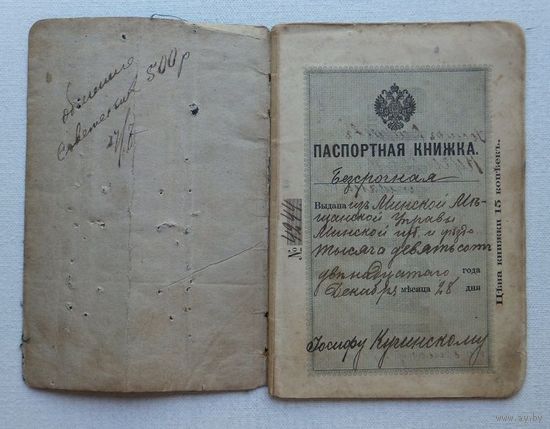 обменено
советскими 500 р
27/
ПАСПОРТНАЯ КНИЖКА.
Безсрочная
Выдана изъ Минской Мѣ-
щанской Управы
Минской губ. и уѣзда
тысяча девятьсотъ
двѣнадцатаго года
Декабря мѣсяца 28 дня
Іосифу Кучинскому
№ 4244
Цѣна книжки 15 копѣекъ.
www.ay.by